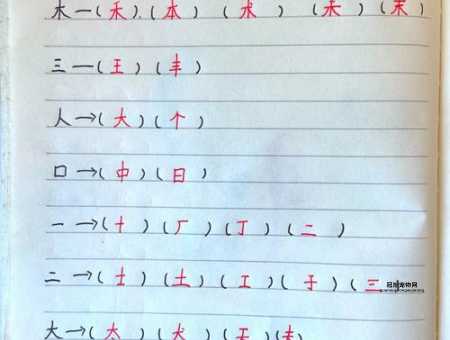 木一(禾)(本)(术)(未)(末)
三一(王)(丰)
人→(大)(个)
口→(中)(日)
一→(十)(厂)(丁)(二)
二→(士)(土)(工)(于)(三
大→(太)(犬)(天)(夫)